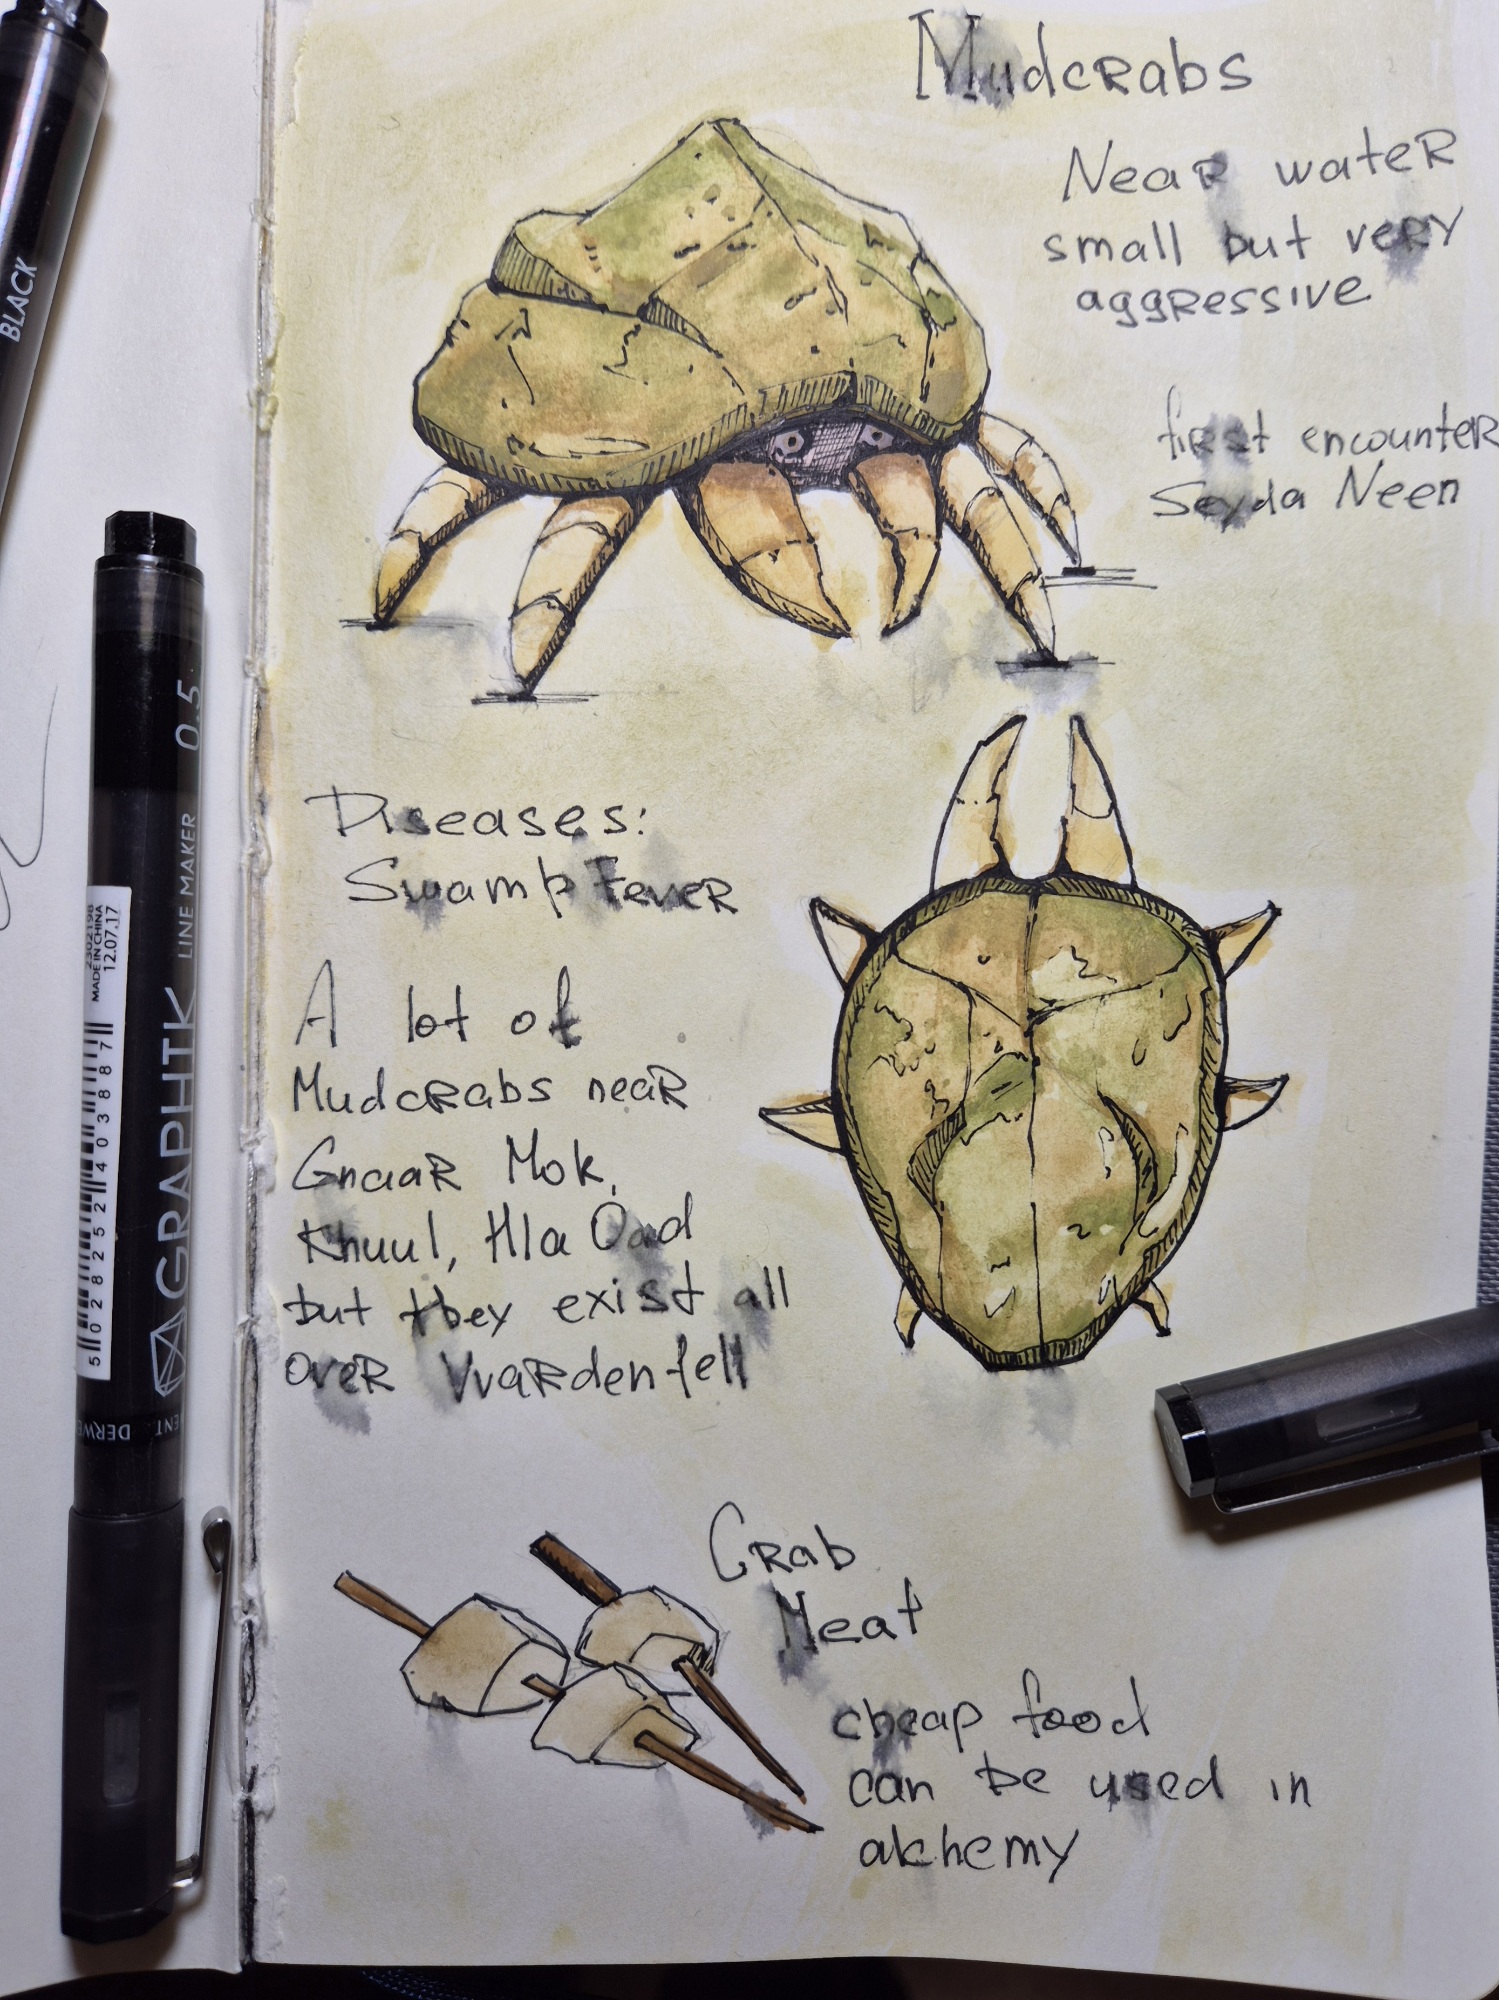 Mudcrabs
Near water
small but very
aggressive
first encounter
Seyda Neen
Diseases:
Swamp Fever
A lot of
Mudcrabs near
Gnaar Mok,
Khuul, Hla Oad
but they exist all
over Vvardenfell
Crab
Meat
cheap food
can be used in
alchemy
BLACK
GRAPHIK LINE MAKER 0.5
2302198
MADE IN CHINA
12.07.17
5 028252 403887